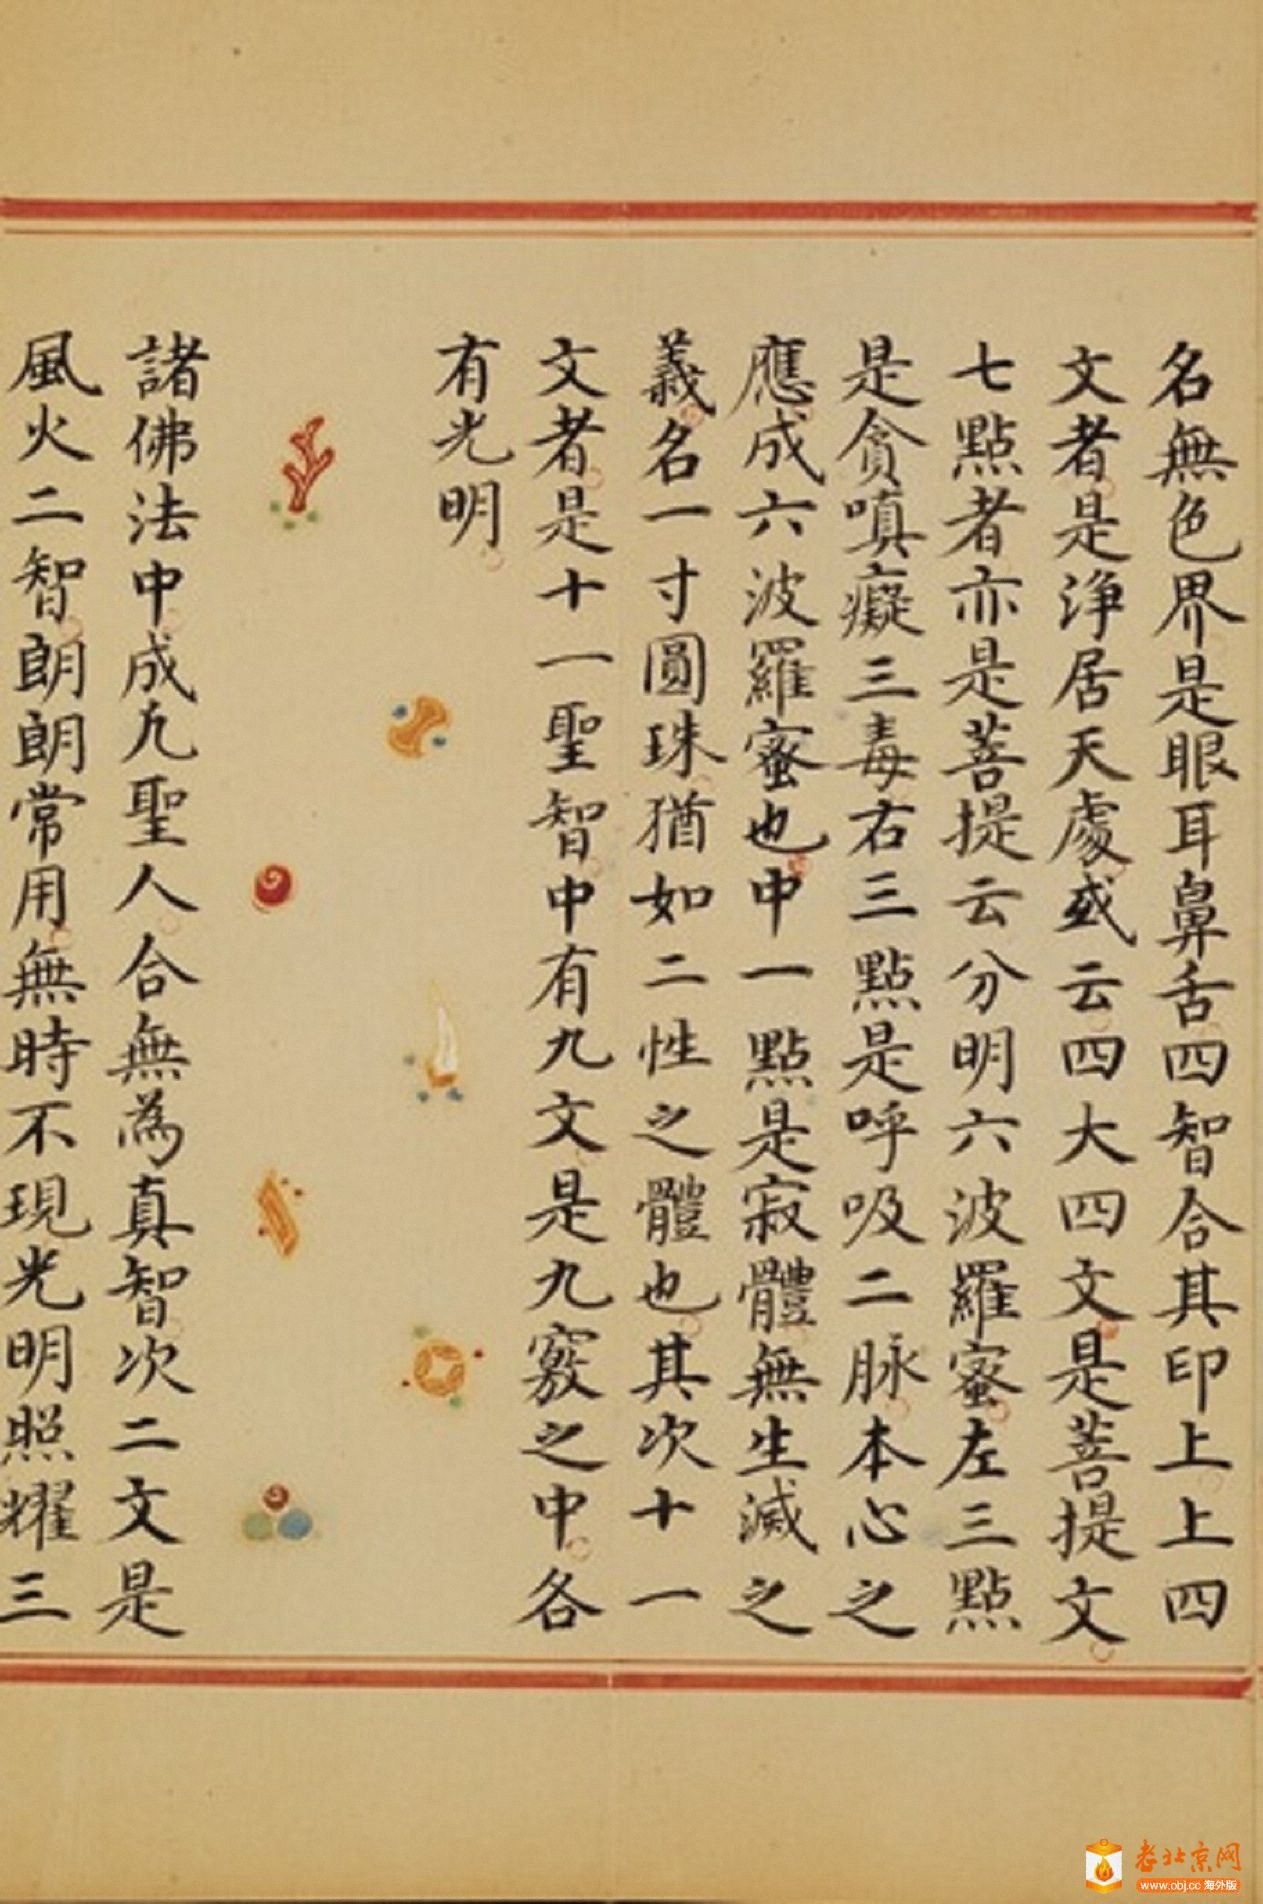 名無色界是眼耳鼻舌四智合其印上上四
文者是淨居天處或云四大四文是菩提文
七點者亦是菩提云分明六波羅蜜左三點
是貪嗔癡三毒右三點是呼吸二脉本心之
應成六波羅蜜也中一點是寂體無生滅之
義名一寸圓珠猶如二性之體也其次十一
文者是十一聖智中有九文是九竅之中各
有光明
諸佛法中成九聖人合無為真智次二文是
風火二智朗朗常用無時不現光明照耀三
老北京网
www.obj.cc 海外版